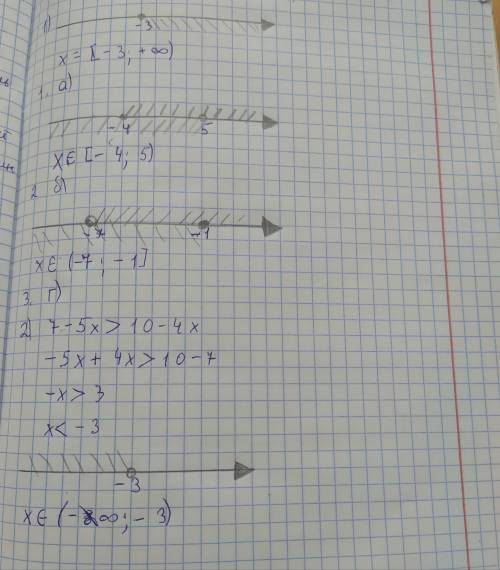 1)
-3
x = [-3; +∞)
1. а)
-4 5
x ∈ [-4; 5)
2. б)
-7 -1
x ∈ (-7; -1]
3. г)
2) 7-5x > 10-4x
-5x + 4x > 10-7
-x > 3
x < -3
-3
x ∈ (-∞; -3)